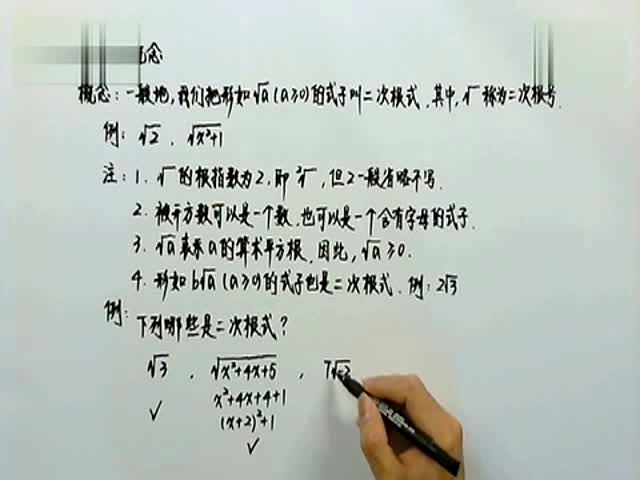 概念
概念：一般地，我们把形如√a（a≥0）的式子叫二次根式．其中，√ 称为二次根号．
例：√2 ．√(x²+1)
注：1．√ 的根指数为2，即 ²√ ，但2一般省略不写．
2．被开方数可以是一个数，也可以是一个含有字母的式子．
3．√a 表示a的算术平方根．因此，√a≥0．
4．形如b√a（a≥0）的式子也是二次根式．例：2√3
例：下列哪些是二次根式？
√3 ．√(x²+4x+5) ，7√-2
x²+4x+4+1
✓ (x+2)²+1
✓